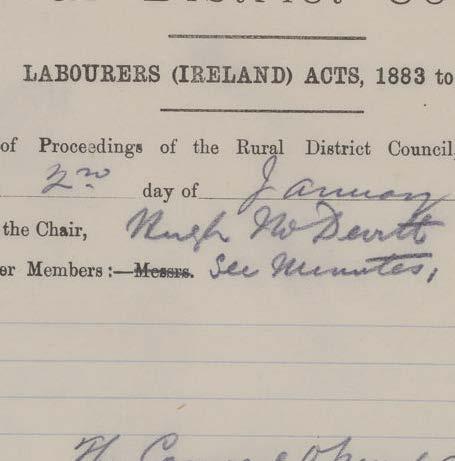 LABOURERS (IRELAND) ACTS, 1883 to
of Proceedings of the Rural District Council,
2nd day of January
the Chair, Hugh McDevitt
er Members:—Messrs. See Minutes,